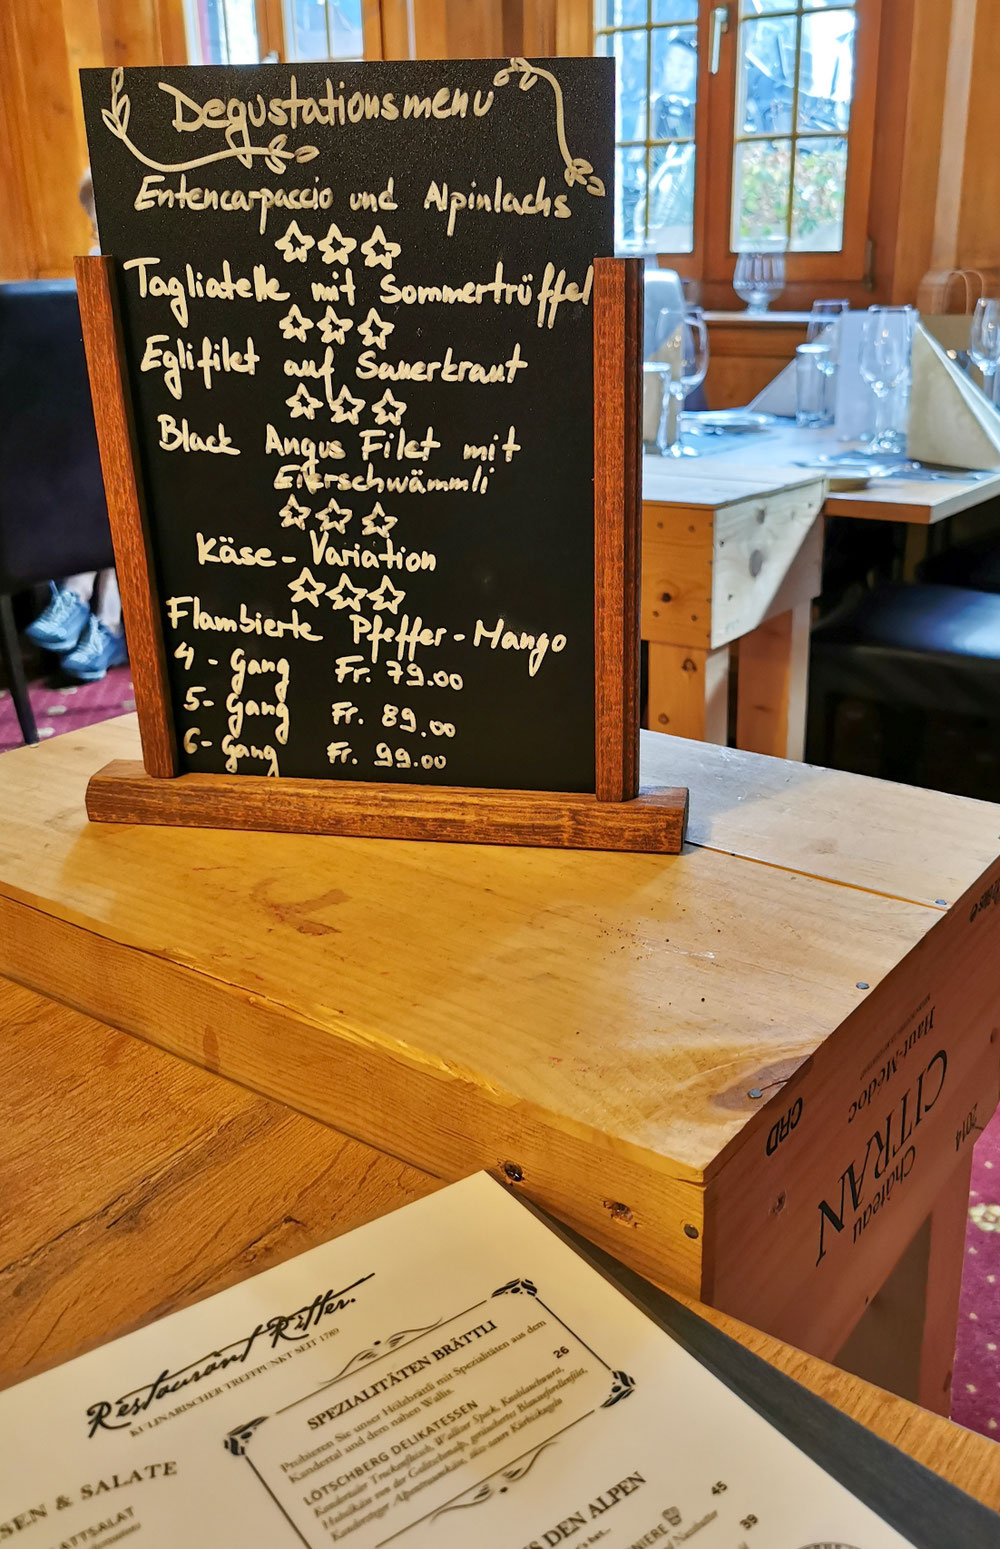 Degustationsmenu
Entencarpaccio und Alpinlachs
Tagliatelle mit Sommertrüffel
Eglifilet auf Sauerkraut
Black Angus Filet mit
Eierschwämmli
Käse-Variation
Flambierte Pfeffer-Mango
4-Gang Fr. 79.00
5-Gang Fr. 89.00
6-Gang Fr. 99.00
CRD
Haut-Médoc
CITRAN
Château
2014
Restaurant Ritter.
KULINARISCHER TREFFPUNKT SEIT 1789
SPEZIALITÄTEN BRÄTTLI
Probieren Sie unser Hölzbrättli mit Spezialitäten aus dem
Kandertal und dem nahen Wallis. 26
LÖTSCHBERG DELIKATESSEN
Kandertaler Trockenfleisch, Walliser Speck, Knoblauchwurst,
Hobelkäse von der Golitschenalp, geräuchertes Blauseeforellenfilet,
Kandersteger Alpenmutschli,
SEN & SALATE
ATTSALAT
S DEN ALPEN
NIERE 45
39